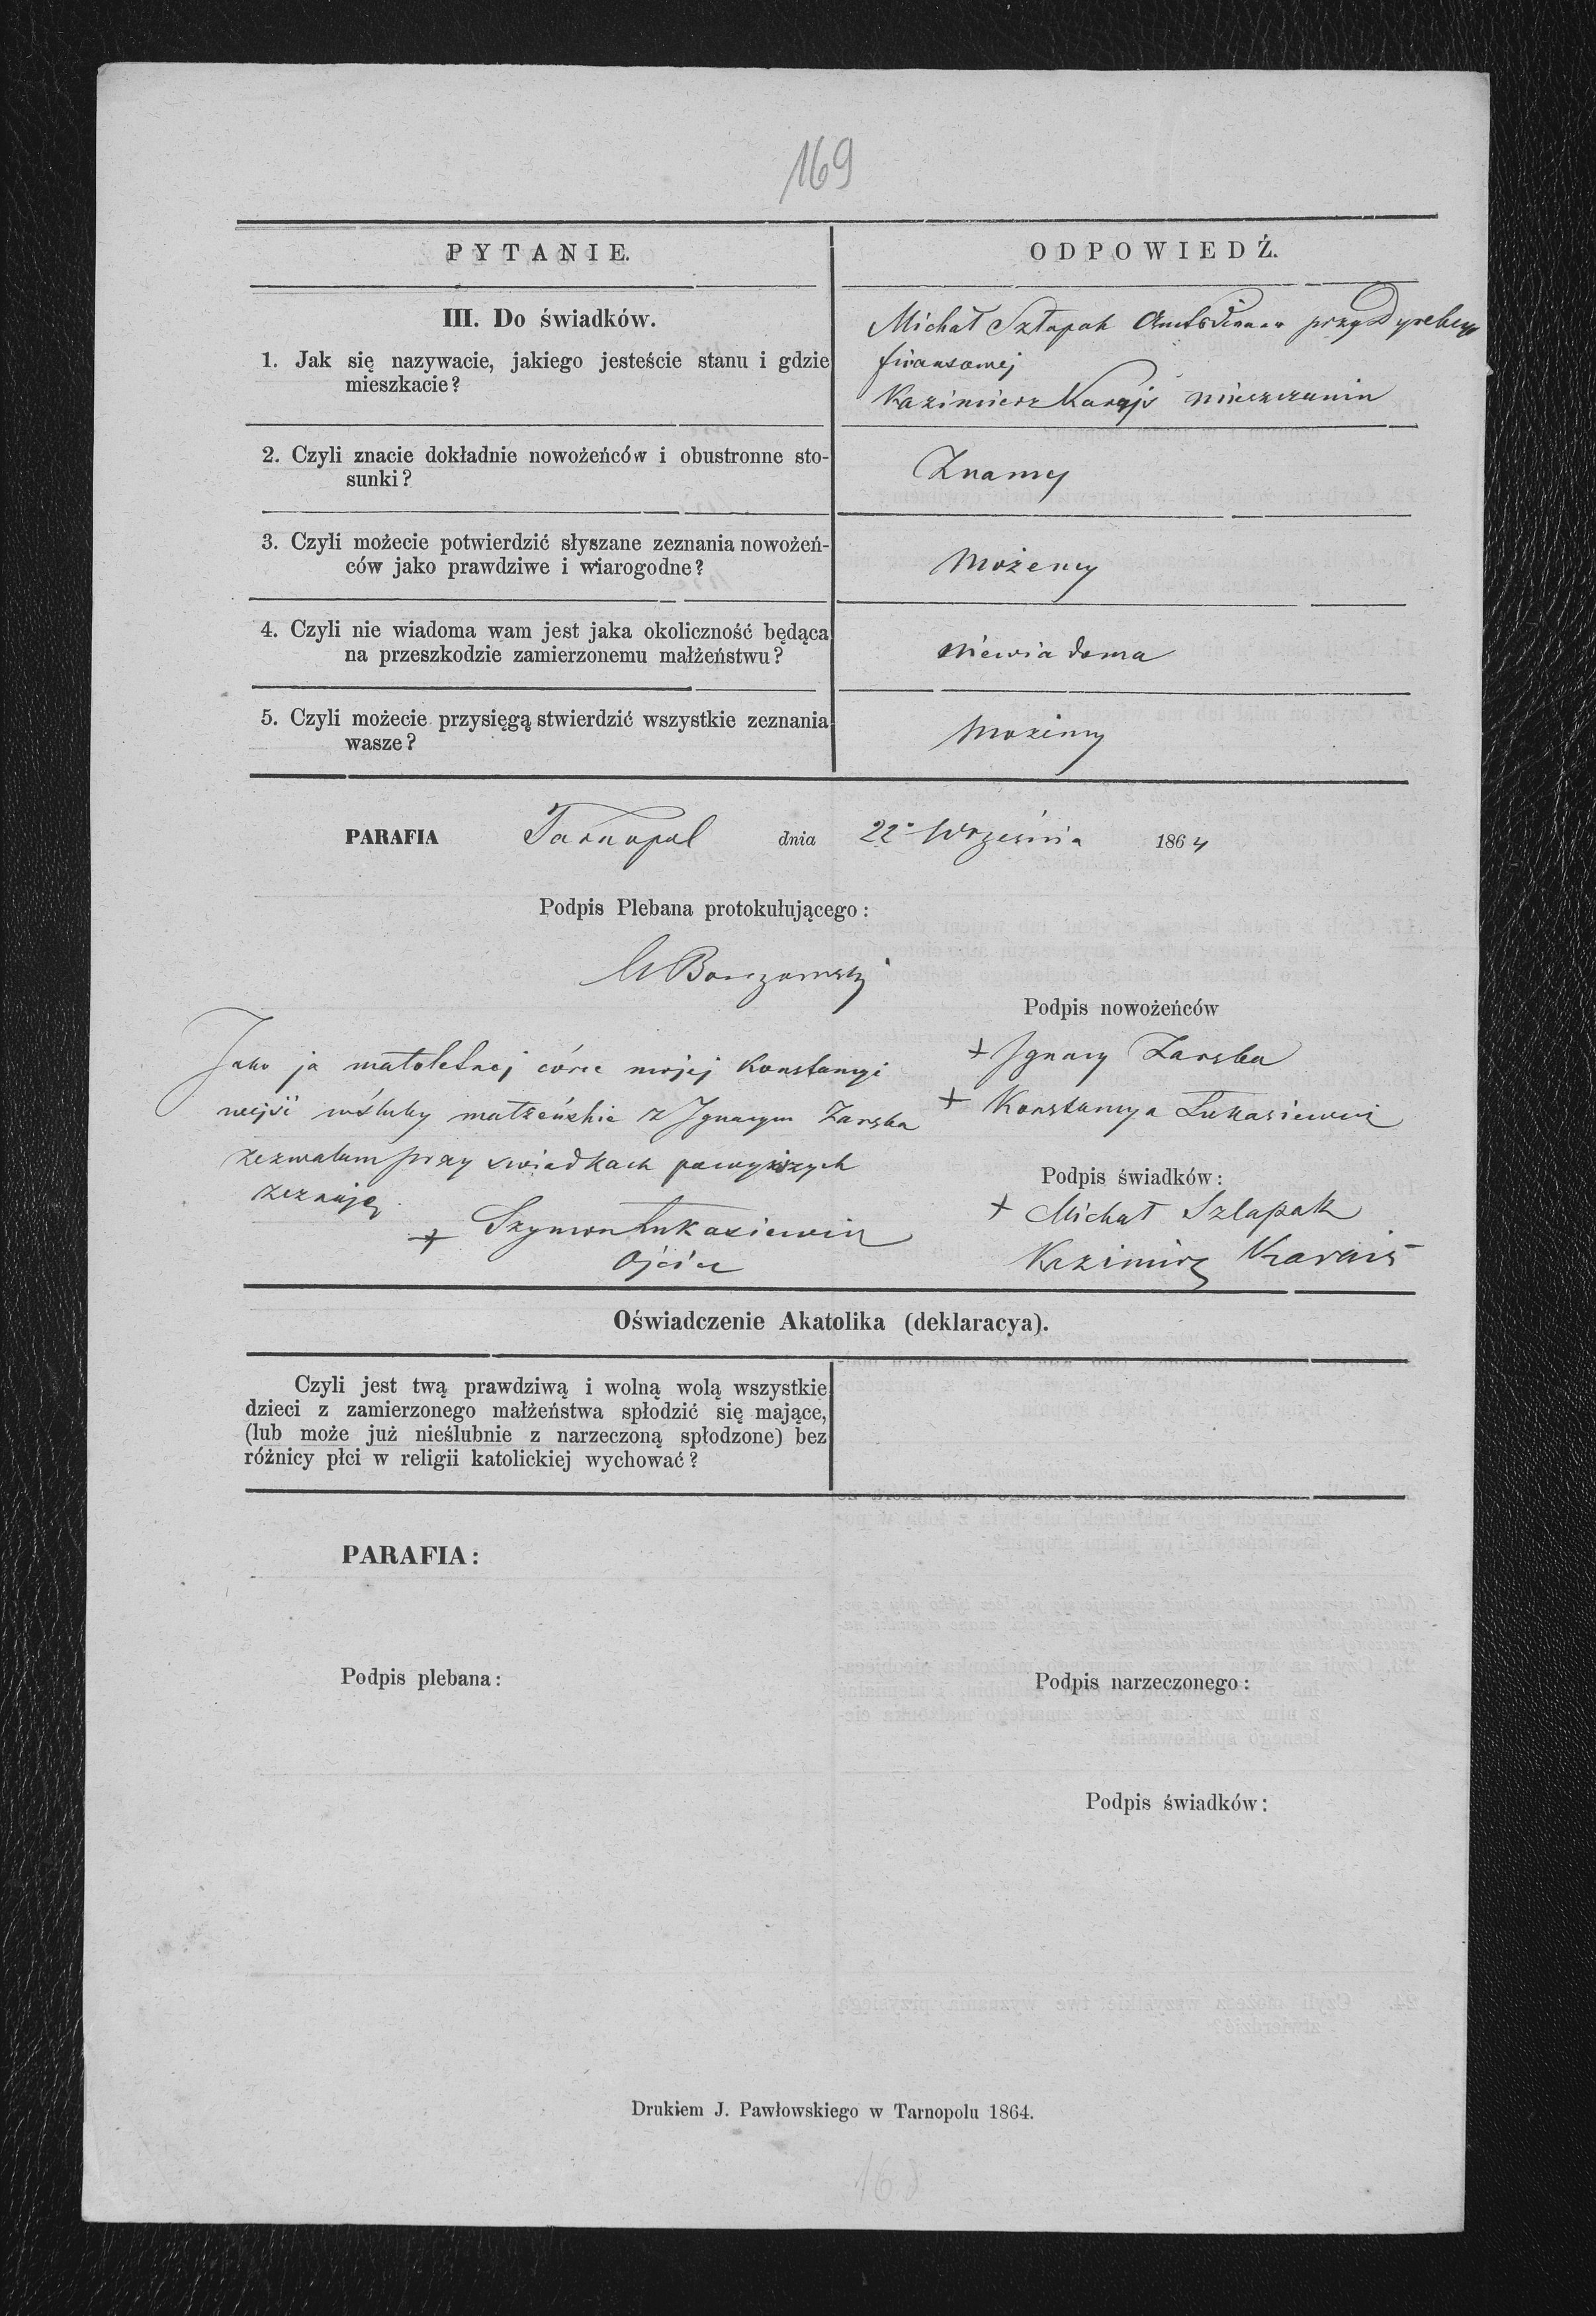 169
PYTANIE.
ODPOWIEDŹ.
III. Do świadków.
1. Jak się nazywacie, jakiego jesteście stanu i gdzie
mieszkacie?
Michał Szłapak Amtsdiener przy Dyrekcyi
finansowej
Kazimierz Karajs mieszczanin
2. Czyli znacie dokładnie nowożeńców i obustronne sto-
sunki?
Znamy
3. Czyli możecie potwierdzić słyszane zeznania nowożeń-
ców jako prawdziwe i wiarogodne?
Możemy
4. Czyli nie wiadoma wam jest jaka okoliczność będąca
na przeszkodzie zamierzonemu małżeństwu?
niewiadoma
5. Czyli możecie przysięgą stwierdzić wszystkie zeznania
wasze?
Możemy
PARAFIA Tarnopol dnia 22 Września 1864
Podpis Plebana protokułującego:
Podpis nowożeńców
Jako ja małoletnej córce mojej Konstancyi
wejść w śluby małżeńskie z Ignacym Zarska
zezwalam przy świadkach powyższych
zeznaję.
+ Szymon Łukasiewicz
Ojciec
+ Ignacy Zarska
+ Konstancya Łukasiewicz
Podpis świadków:
+ Michał Szlapak
Kazimirz Karais
Oświadczenie Akatolika (deklaracya).
Czyli jest twą prawdziwą i wolną wolą wszystkie
dzieci z zamierzonego małżeństwa spłodzić się mające,
(lub może już nieślubnie z narzeczoną spłodzone) bez
różnicy płci w religii katolickiej wychować?
PARAFIA:
Podpis plebana:
Podpis narzeczonego:
Podpis świadków:
Drukiem J. Pawłowskiego w Tarnopolu 1864.
168